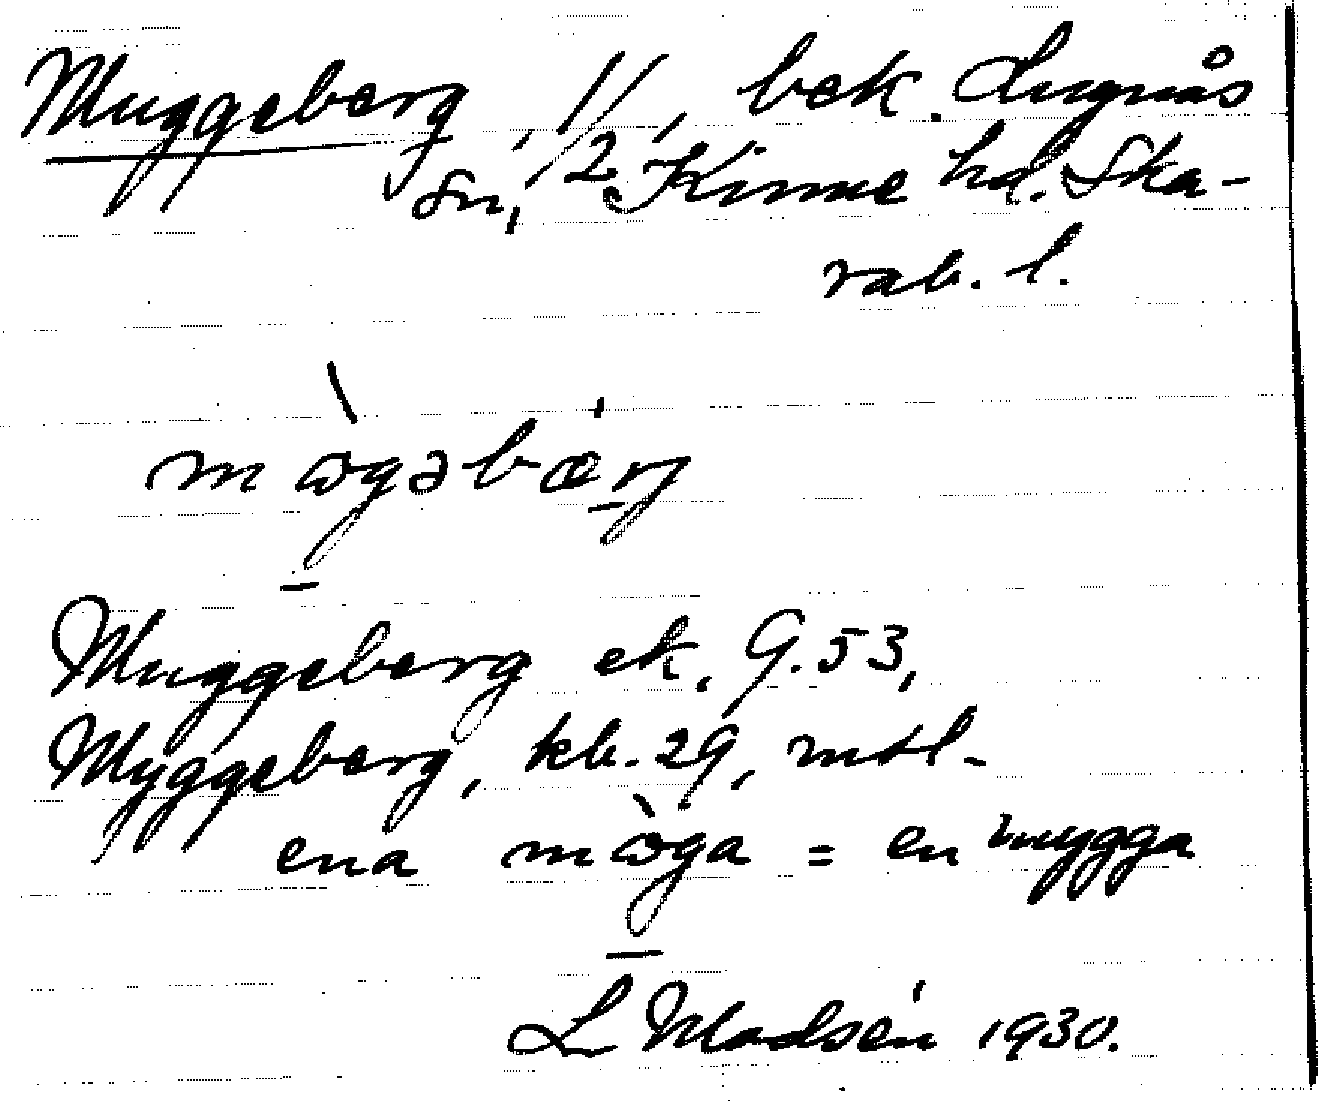 Muggeberg, 1/2, bek. Lugnås
sn, Kinne hd. Ska-
rab. l.
mò̱gəbæṟg
Muggeberg ek. G. 53,
Myggeberg, kb. 29, mtl-
ena mò̱ga = en mygga
L Modsén 1930.